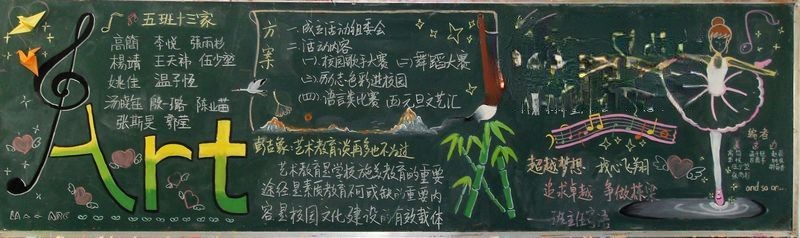 五班十三家
高简 李悦 張雨杉
楊靖 王天祎 伍少堃
姚佳 温子恒
汤晓钰 殷璐 陈苗
张斯旻 郭莹
Art
方案
一.成立活动组委会
二.活动内容
(一).校园歌手大赛 (二)舞蹈大赛
(三)励志色彩进校园
(四).语言类比赛 元旦文艺汇
艺术教育谈再多也不为过
艺术教育是学校施美教育的重要
途径是素质教育不可或缺的重要内
容是校园文化建设的有效载体
超越梦想 我心飞翔
追求卓越 争做栋梁
班主任寄语
编者
and so on...